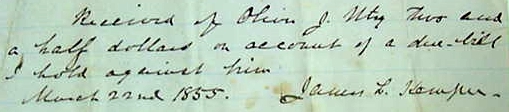 Received of Oliver J. Utz Two and
a half dollars on account of a due-bill
I hold against him
March 22nd 1855. James L. Kemper.